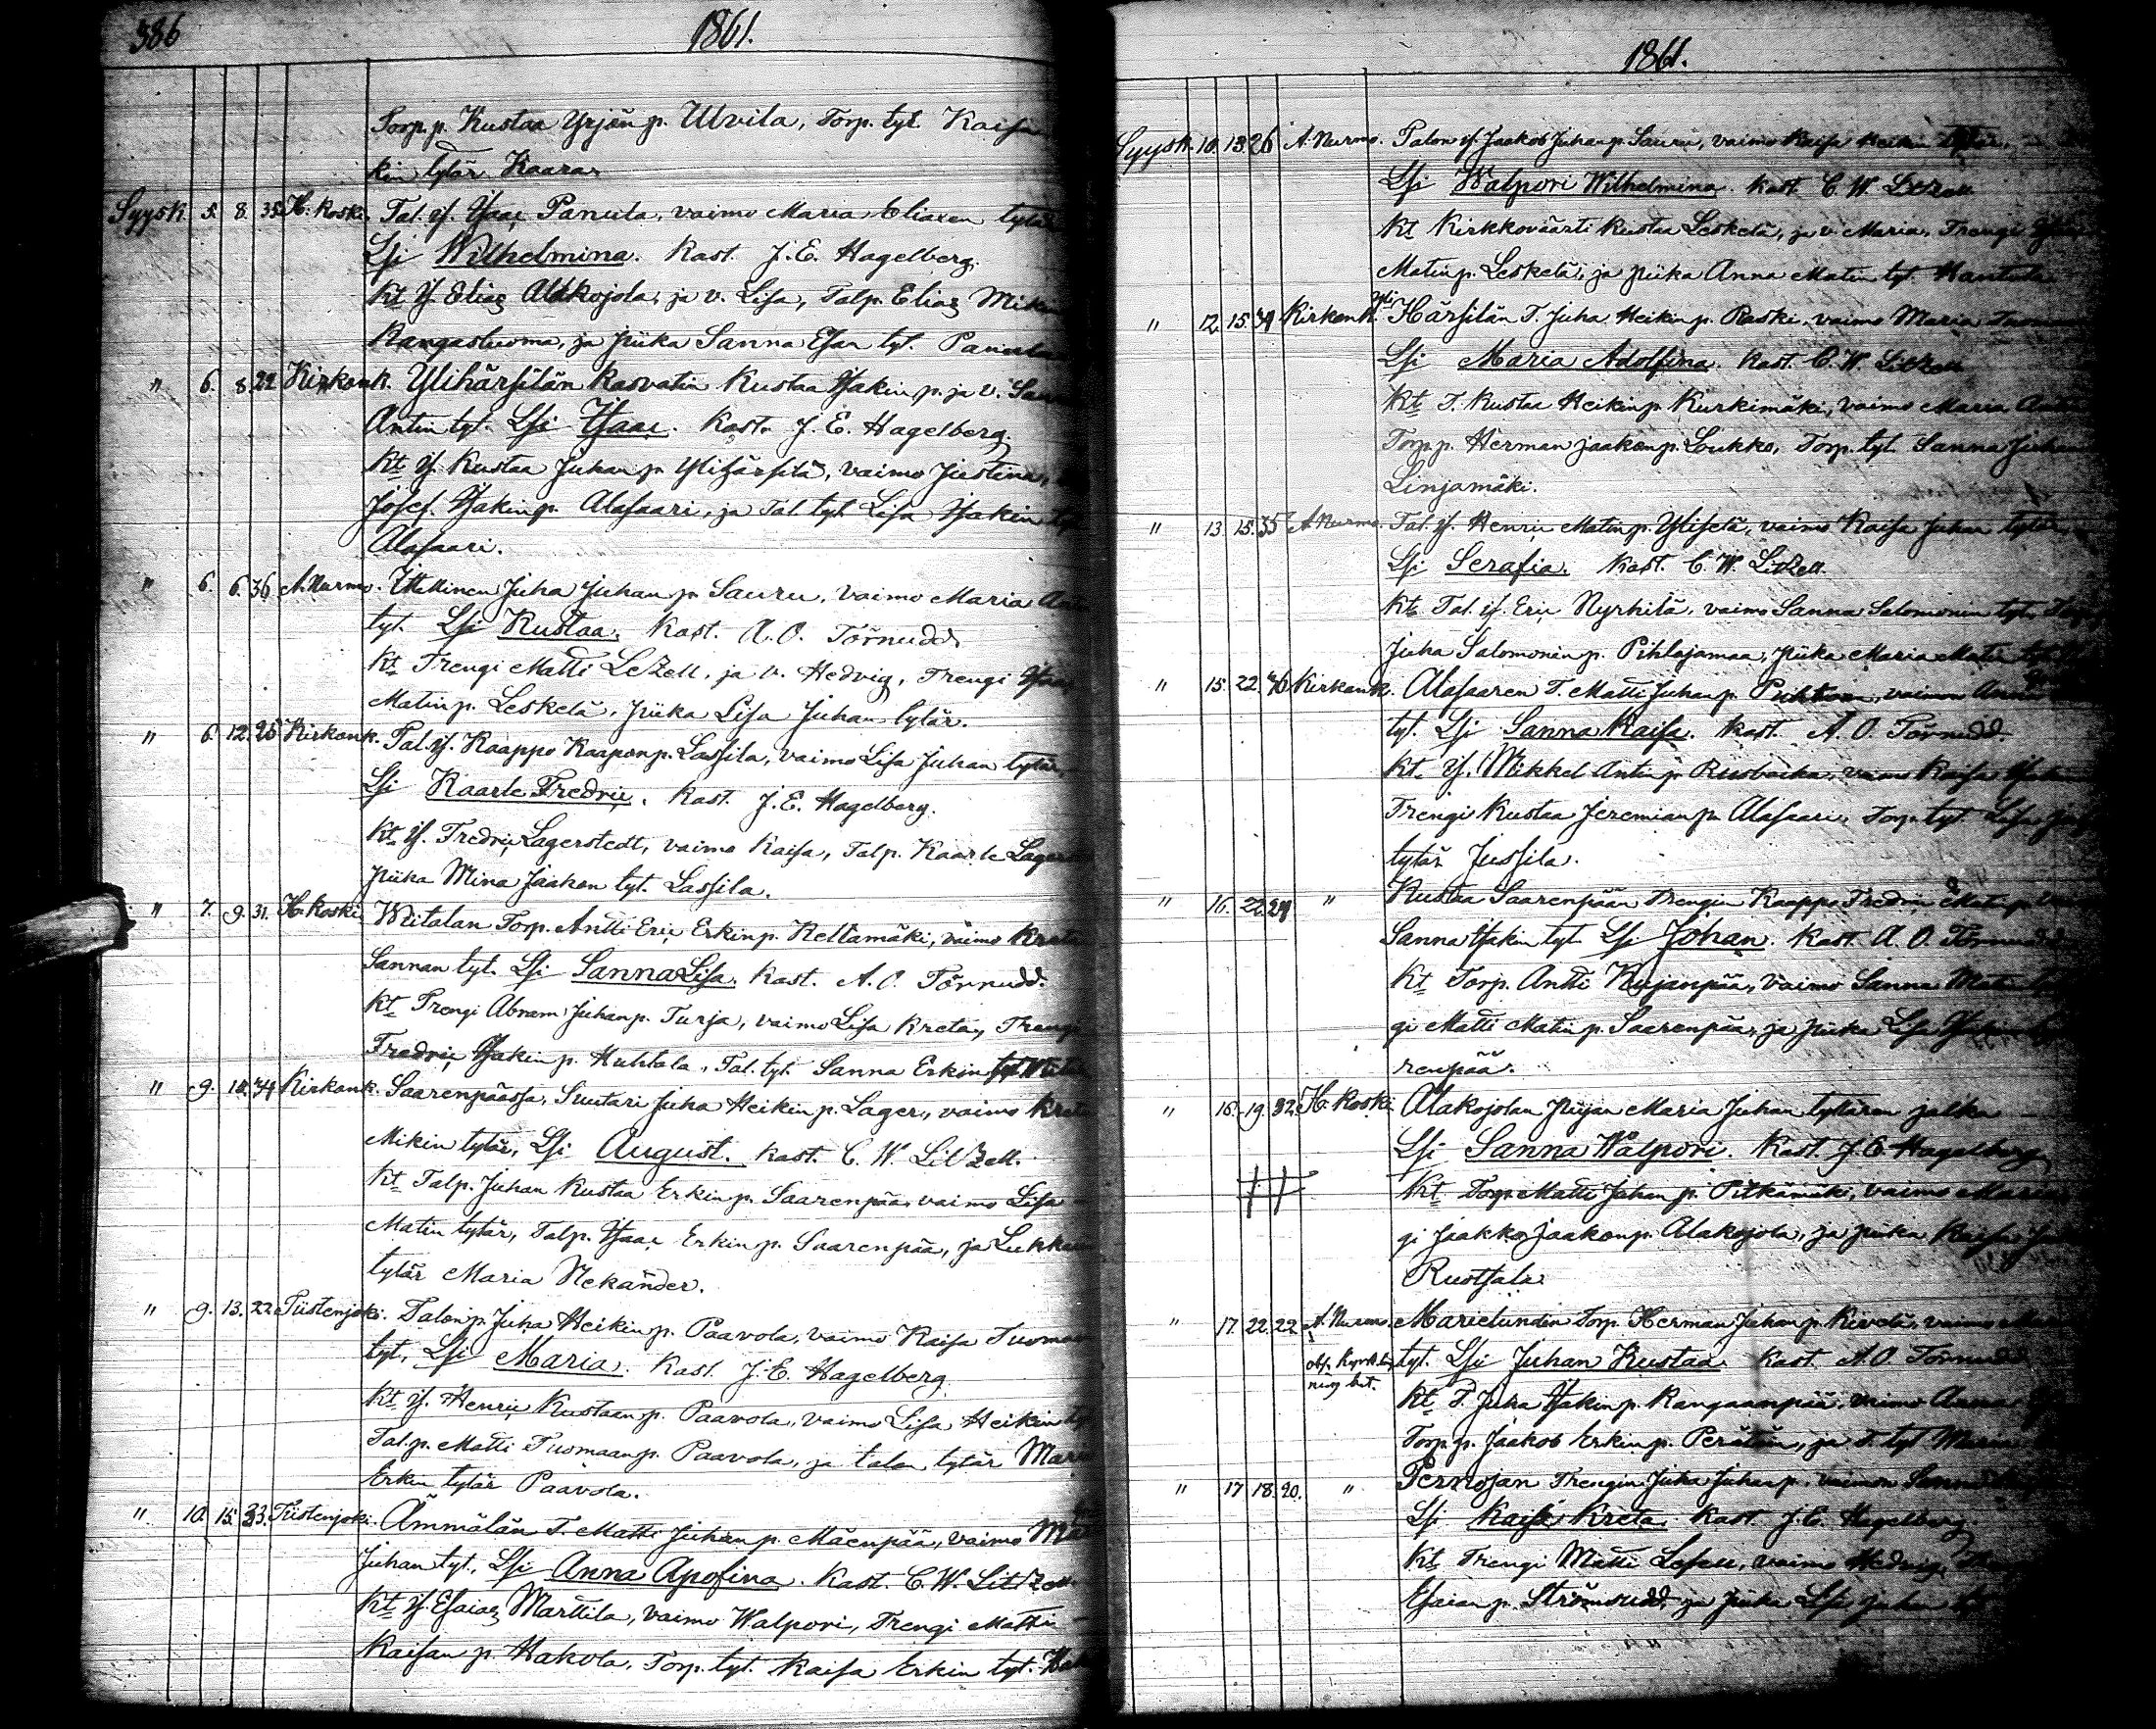 386
1861.
Torp. p. Kustaa Yrjön p. Ulvila, Torp. tyt. Kaisa
kin tytär Kaara.
Syysk. 5. 8. 35. H. koski. Tal. is. Isaac Panula, vaimo Maria Eliaxen tytär
Lsi Wilhelmina. Kast. J. E. Hagelberg.
Kt. is. Elias Alakojola, ja v. Lisa, Talp. Elias Mikin
Kangasluoma, ja piika Sanna Esan tyt. Panula
" 6. 8. 22. Kirkonk. Ylihärsilän kasvatin Kustaa Isakin p. ja v. Sanna
Antin tyt. Lsi Isaac. Kast. J. E. Hagelberg.
Kt. is. Kustaa Juhan p. Ylihärsilä, vaimo Justina,
Josef Isakin p. Alasaari, ja Tal. tyt. Lisa Isakin tyt.
Alasaari.
" 6. 6. 36. A. Nurmo. Itellinen Juha Juhan p. Sauru, vaimo Maria
tyt. Lsi Kustaa. Kast. A. O. Törnudd.
Kt. Trengi Matti LeZell, ja v. Hedvig, Trengi Isaac
Matin p. Leskelä, piika Lisa Juhan tytär.
" 6. 12. 25 Kirkonk. Tal. is. Kaappo Kaapon p. Lassila, vaimo Lisa Juhan tytär
Lsi Kaarle Fredric. Kast. J. E. Hagelberg.
Kt. is. Fredric Lagerstedt, vaimo Kaisa, Talp. Kaarle Lager
piika Mina Jaakon tyt. Lassila.
" 7. 9. 31. H. Koski. Witalan Torp. Antti Eric Erkin p. Keltamäki, vaimo Kreta
Sannan tyt. Lsi Sanna Lisa. Kast. A. O. Törnudd.
Kt. Trengi Abram Juhan p. Turja, vaimo Lisa Kreta, Trengi
Fredric Isakin p. Huhtala, Tal. tyt. Sanna Erkin tyt.
" 9. 10. 34 Kirkonk. Saarenpäässä, Suutari Juha Heikin p. Lager, vaimo Kreta
Mikin tytär, Lsi August. Kast. C. W. LitZell.
Kt. Talp. Juhan Kustaa Erkin p. Saarenpää, vaimo Lisa
Matin tytär, Talp. Isaac Erkin p. Saarenpää, ja Lukkarin
tytär Maria Nekander.
" 9. 13. 22. Tiistenjoki. Talon p. Juha Heikin p. Paavola, vaimo Kaisa Tuomaan
tyt. Lsi Maria. Kast. J. E. Hagelberg.
Kt. is. Henric Kustaan p. Paavola, vaimo Lisa Heikin
Tal. p. Matti Tuomaan p. Paavola, ja talon tytär Maria
Erkin tytär Paavola.
" 10. 15. 33. Tiistenjoki. Ämmälän T. Matti Juhan p. Mäenpää, vaimo
Juhan tyt., Lsi Anna Apofina. Kast. C. W. LitZell.
Kt. is. Esaias Marttila, vaimo Walpori, Trengi Matti
Kaisan p. Hakola, Torp. tyt. Kaisa Erkin tyt.
1861.
Syysk. 10. 13. 26 A. Nurmo. Talon is. Jaakob Juhan p. Sauru, vaimo Kaisa Heikin tytär,
Lsi Walpori Wilhelmina. Kast. C. W. LitZell
Kt. Kirkkoväärti Kustaa Leskelä, ja v. Maria, Trengi
Matin p. Leskelä, ja piika Anna Matin tyt. Hantula
" 12. 15. 39 Kirkonk. Yli Härsilän T. Juha Heikin p. Koski, vaimo Maria
Lsi Maria Adolfina. Kast. C. W. LitZell
Kt. T. Kustaa Heikin p. Kurkimäki, vaimo Maria
Torp. p. Herman Jaakon p. Loukko, Torp. tyt. Sanna Juhan
Linjamäki.
" 13 15. 35 A. Nurmo. Tal. is. Henric Matin p. Ylisetä, vaimo Kaisa Juhan tytär
Lsi Serafia. Kast. C. W. LitZell
Kt. Tal. is. Eric Nyrhilä, vaimo Sanna Salomonin tyt.
Juha Salomonin p. Pihlajamaa, piika Maria Matin
" 15. 22. 36 Kirkonk. Alasaaren T. Matti Juhan p. vaimo
tyt. Lsi Sanna Kaisa. Kast. A. O. Törnudd.
Kt. is. Mikkel Antin p. vaimo Kaisa
Trengi Kustaa Jeremian p. Alasaari, Torp. tyt. Lisa
tytär Jussila.
" 16. 22. 29 " Kustaa Saarenpään Trengin Kaappo Fredric Matin p.
Sanna Isakin tyt. Lsi Johan. Kast. A. O. Törnudd
Kt. Torp. Antti Kujanpää, vaimo Sanna
gi Matti Matin p. Saarenpää, ja piika Lisa
renpää.
" 16. 19. 32. H. Koski. Alakojolan piijan Maria Juhan tyttären
Lsi Sanna Walpori. Kast. J. E. Hagelberg
Kt. Torp. Matti Juhan p. Pitkämäki, vaimo Maria
gi Jaakko Jaakon p. Alakojola, ja piika Kaisa
Ruotsala.
" 17. 22. 22 A. Nurmo. Marielundin Torp. Herman Juhan p. Kivelä, vaimo
tyt. Lsi Juhan Kustaa. Kast. A. O. Törnudd
Kt. T. Juha Isakin p. Kangaanpää, vaimo Anna
Torp. p. Jaakob Erkin p. Perätön, ja T. tyt. Maria
" 17 18. 20. " Pernojan Trengin Juha Juhan p. vaimon Sanna
Lsi Kaisa Kreta. Kast. J. E. Hagelberg.
Kt. Trengi Matti Lesell, vaimo Hedvig,
Esaian p. Strömsudd, ja piika Lisa Juhan